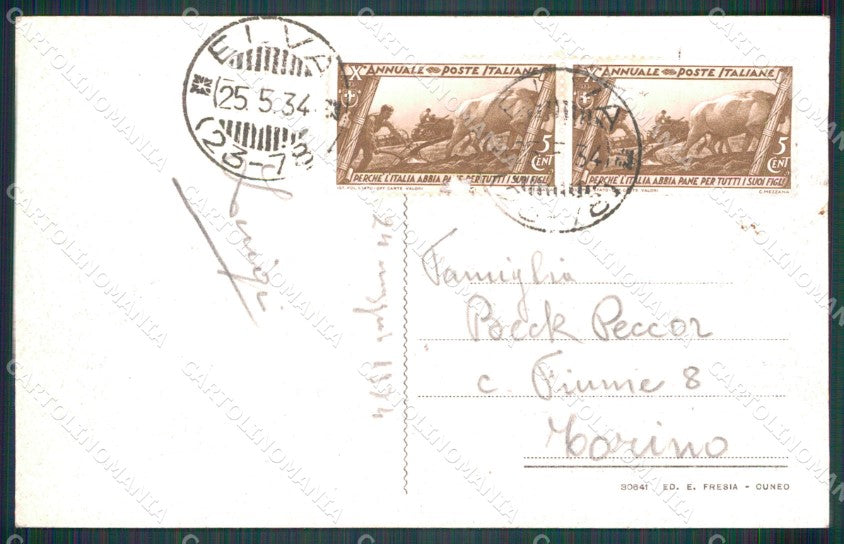 ELVA
25.5.34
(23-78)
X° ANNUALE POSTE ITALIANE
5 CENT
PERCHÉ L'ITALIA ABBIA PANE PER TUTTI I SUOI FIGLI
IST. POL. STATO-OFF. CARTE VALORI
X° ANNUALE POSTE ITALIANE
5 CENT
PERCHÉ L'ITALIA ABBIA PANE PER TUTTI I SUOI FIGLI
C. MEZZANA
Famiglia
Pocck Peccor
c. Fiume 8
Torino
30641 ED. E. FRESIA - CUNEO
CARTOLINOMANIA